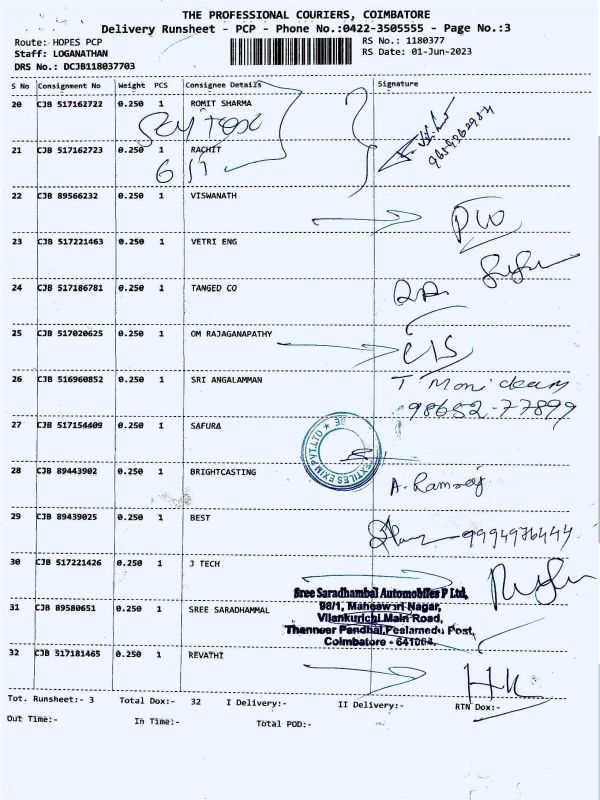 THE PROFESSIONAL COURIERS, COIMBATORE
Delivery Runsheet - PCP - Phone No.:0422-3505555 - Page No.:3
Route: HOPES PCP RS No.: 1180377
Staff: LOGANATHAN RS Date: 01-Jun-2023
DRS No.: DCJB118037703
S No Consignment No Weight PCS Consignee Details Signature
20 CJB 517162722 0.250 1 ROMIT SHARMA
21 CJB 517162723 0.250 1 RACHIT
22 CJB 89566232 0.250 1 VISWANATH
23 CJB 517221463 0.250 1 VETRI ENG
24 CJB 517186781 0.250 1 TANGED CO
25 CJB 517020625 0.250 1 OM RAJAGANAPATHY
26 CJB 516960852 0.250 1 SRI ANGALAMMAN
98652-77899
27 CJB 517154409 0.250 1 SAFURA
EXTILES EXIM PVT.LTD
28 CJB 89443902 0.250 1 BRIGHTCASTING
A. Ramraj
29 CJB 89439025 0.250 1 BEST
9994976444
30 CJB 517221426 0.250 1 J TECH
Sree Saradhambal Automobiles P Ltd,
31 CJB 89580651 0.250 1 SREE SARADHAMMAL
98/1, Nagar,
Vilankurichi Main Road,
Thanneer Pandhal, Peelamedu Post,
Coimbatore - 641004.
32 CJB 517181465 0.250 1 REVATHI
HK
Tot. Runsheet:- 3 Total Dox:- 32 I Delivery:- II Delivery:- RTN Dox:-
Out Time:- In Time:- Total POD:-